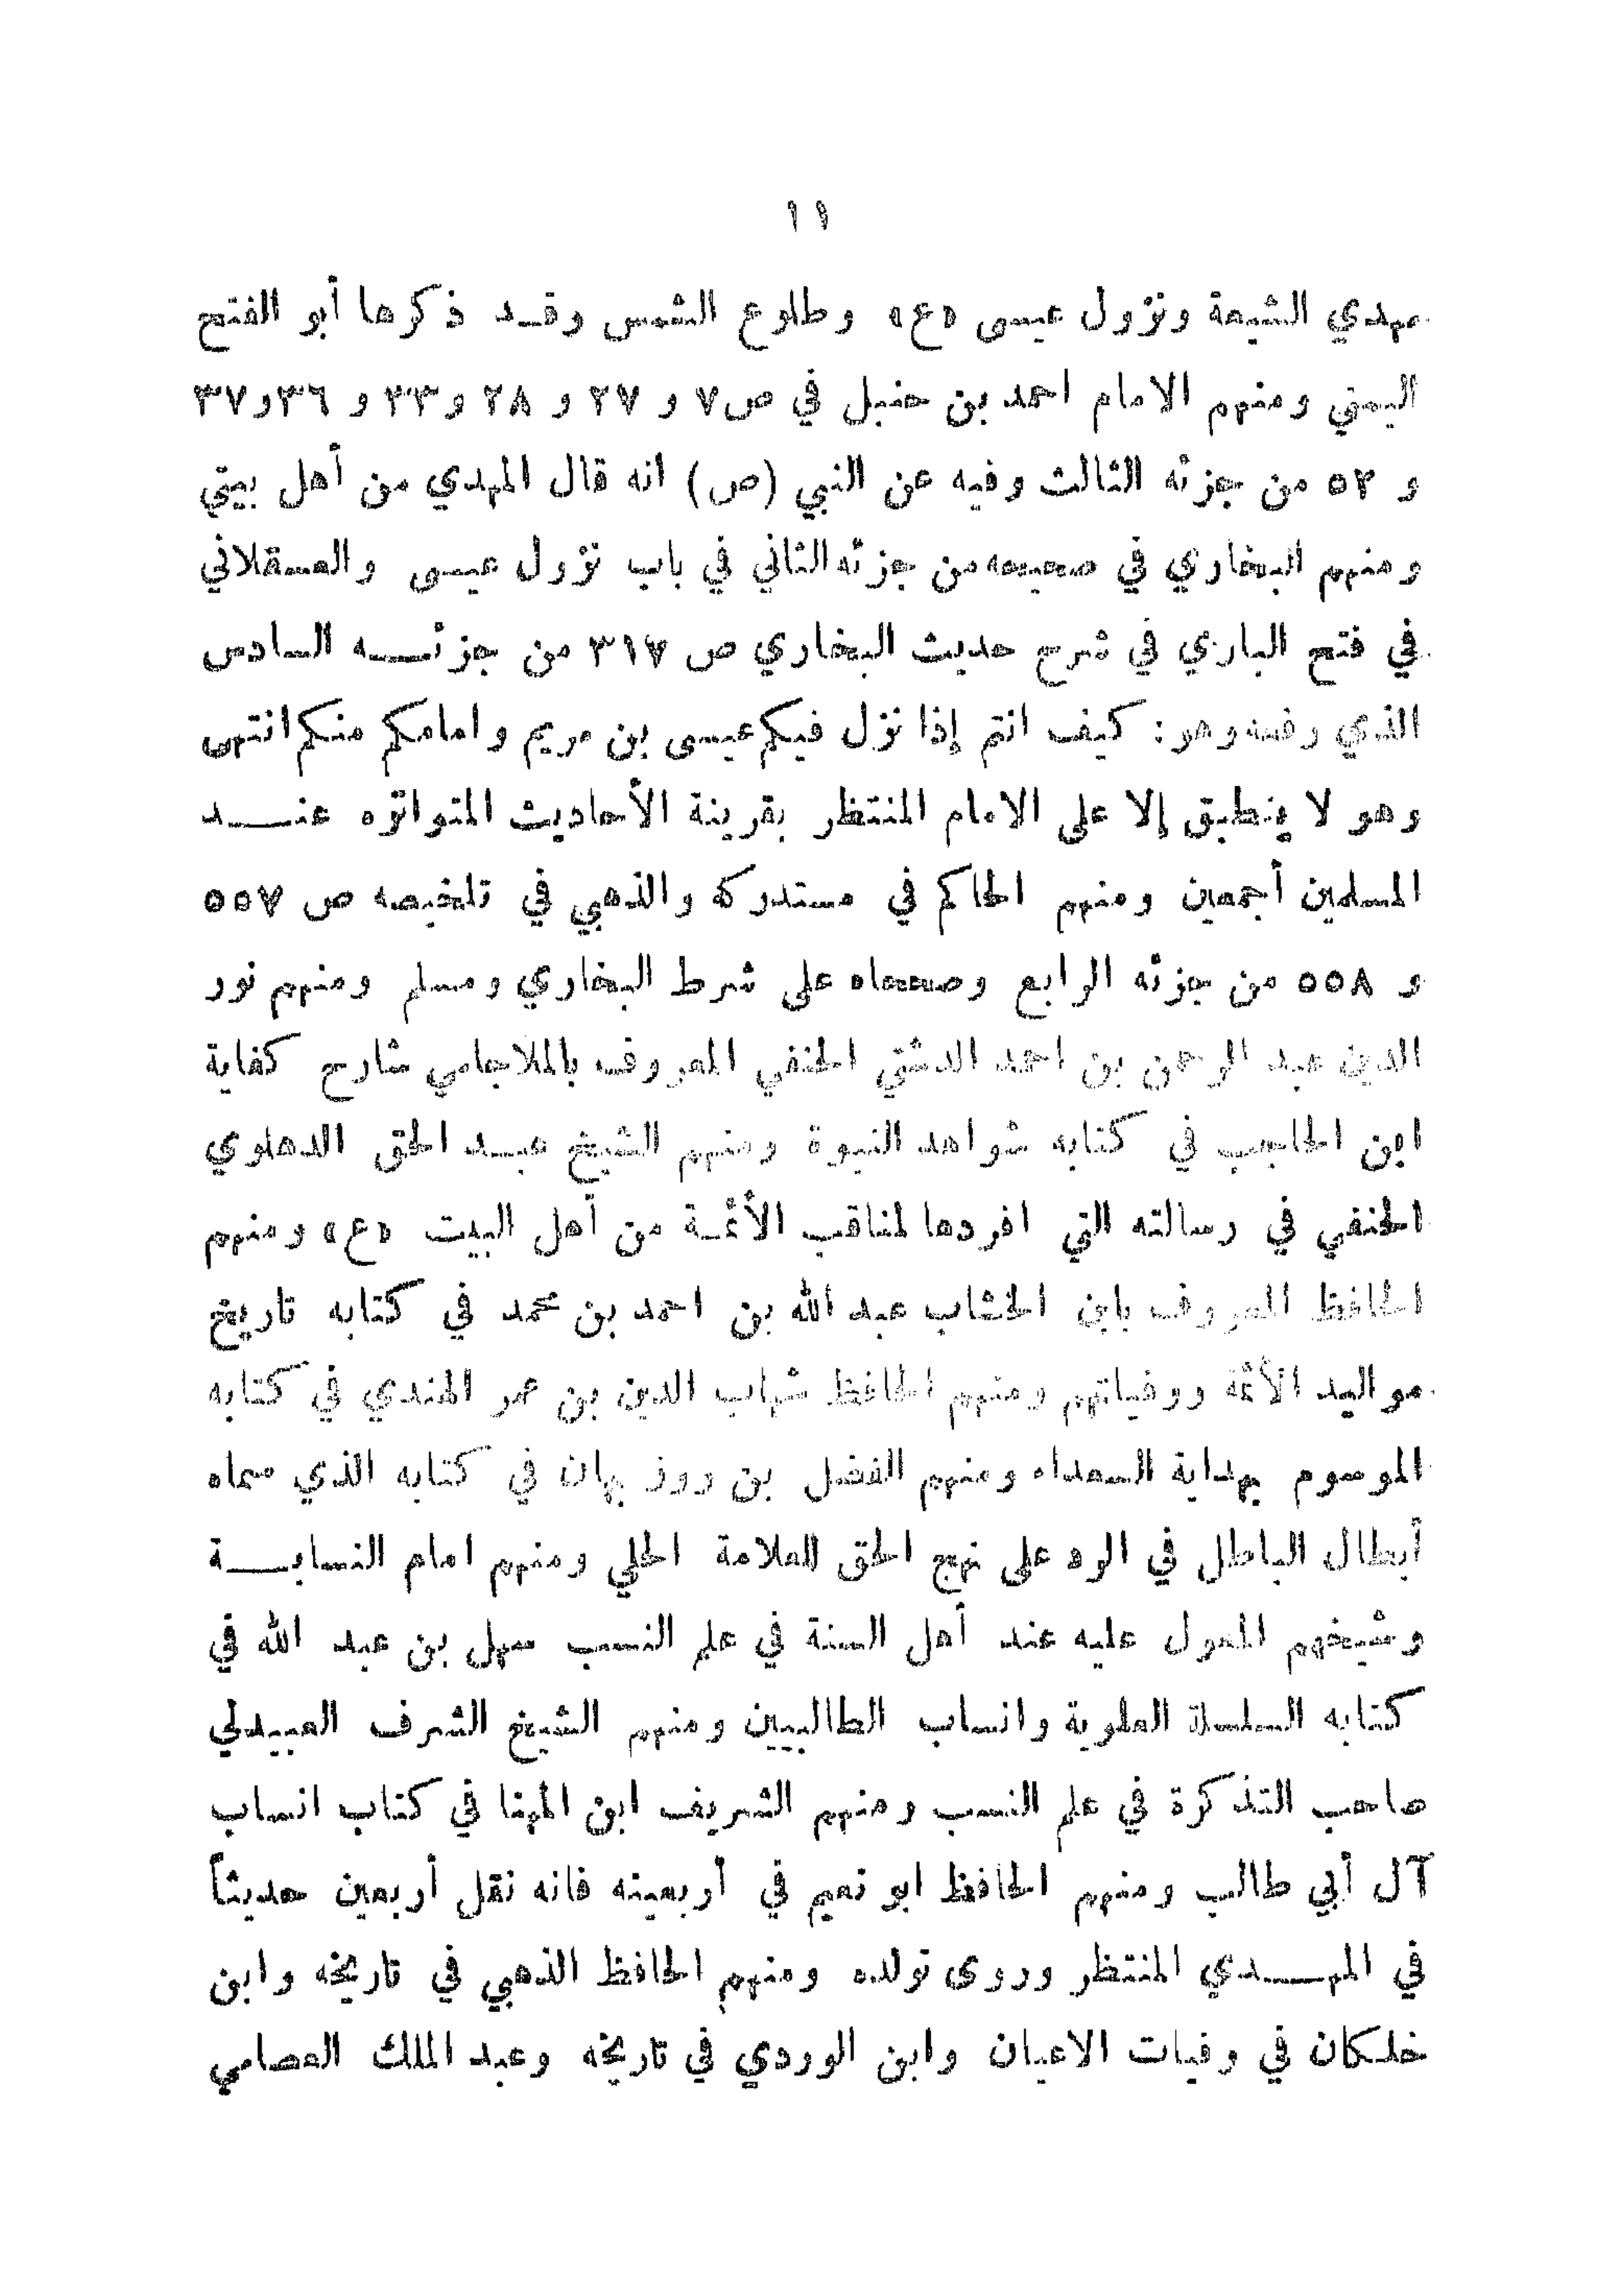 ١١
مهدي الشيعة ونزول عيسى «ع» وطلوع الشمس وقد ذكرها أبو الفتح
اليمني ومنهم الامام احمد بن حنبل في ص٧ و ٢٧ و ٢٨ و٣٣ و ٣٦ و٣٧
و ٥٢ من جزئه الثالث وفيه عن النبي (ص) انه قال المهدي من أهل بيتي
ومنهم البخاري في صحيحه من جزئه الثاني في باب نزول عيسى والعسقلاني
في فتح الباري في شرح حديث البخاري ص ٣١٧ من جزئه السادس
الذي رفعه وهو: كيف انتم إذا نزل فيكم عيسى بن مريم وامامكم منكم انتهى
وهو لا ينطبق إلا على الامام المنتظر بقرينة الأحاديث المتواتره عند
المسلمين أجمعين ومنهم الحاكم في مستدركه والذهبي في تلخيصه ص ٥٥٧
و ٥٥٨ من جزئه الرابع وصححاه على شرط البخاري ومسلم ومنهم نور
الدين عبد الرحمن بن احمد الدشتي الحنفي المعروف بالملاجامي شارح كفاية
ابن الحاجب في كتابه شواهد النبوة ومنهم الشيخ عبد الحق الدهلوي
الحنفي في رسالته التي افردها لمناقب الأئمة من أهل البيت «ع» ومنهم
الحافظ المعروف بابن الخشاب عبد الله بن احمد بن محمد في كتابه تاريخ
مواليد الأئمة ووفياتهم ومنهم الحافظ شهاب الدين بن عمر الهندي في كتابه
الموسوم بهداية السعداء ومنهم الفضل بن روز بهان في كتابه الذي سماه
أبطال الباطل في الرد على نهج الحق للعلامة الحلي ومنهم امام النسابة
وشيخهم المعول عليه عند أهل السنة في علم النسب سهل بن عبد الله في
كتابه السلسلة العلوية وانساب الطالبيين ومنهم الشيخ الشرف العبيدلي
صاحب التذكرة في علم النسب ومنهم الشريف ابن المهنا في كتاب انساب
آل أبي طالب ومنهم الحافظ ابو نعيم في أربعينه فانه نقل أربعين حديثاً
في المهدي المنتظر وروى تولده ومنهم الحافظ الذهبي في تاريخه وابن
خلكان في وفيات الاعيان وابن الوردي في تاريخه وعبد الملك العصامي